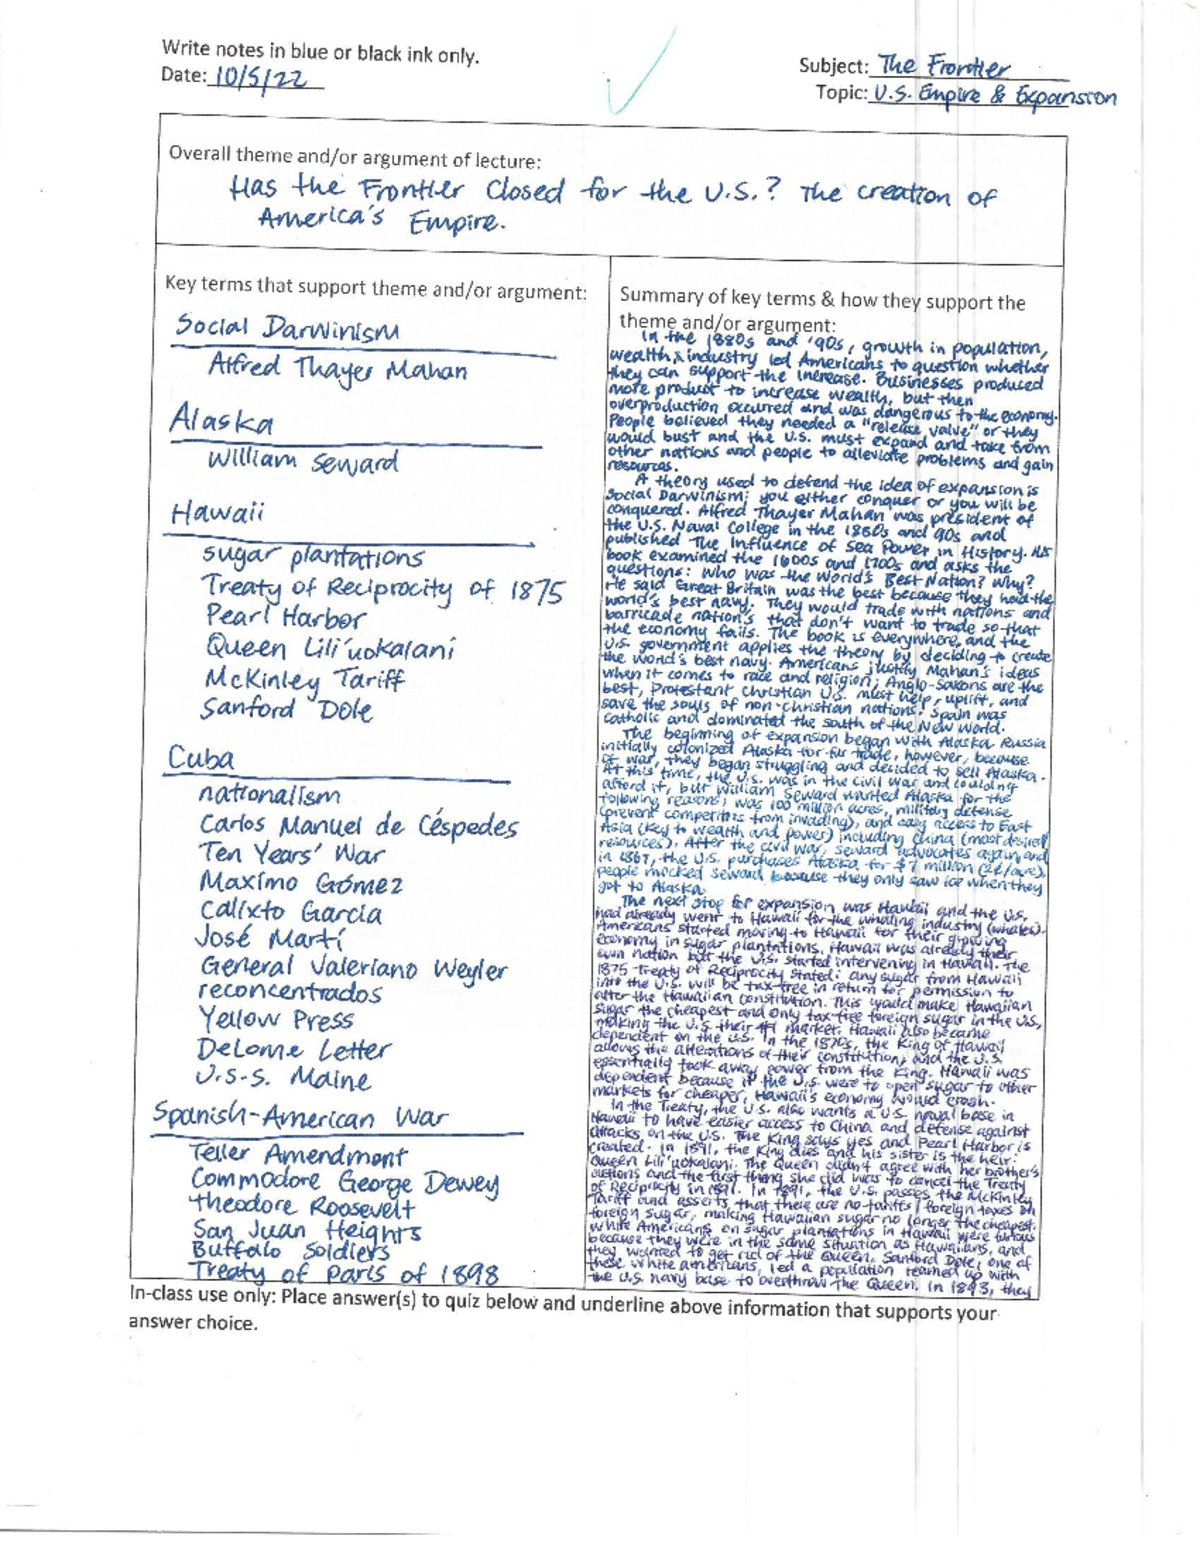 Write notes in blue or black ink only.
Date: 10/5/22
Subject: The Frontier
Topic: U.S. Empire & Expansion
Overall theme and/or argument of lecture:
Has the Frontier Closed for the U.S.? The creation of
America's Empire.
Key terms that support theme and/or argument:
Social Darwinism
Alfred Thayer Mahan
Alaska
William Seward
Hawaii
sugar plantations
Treaty of Reciprocity of 1875
Pearl Harbor
Queen Lili'uokalani
McKinley Tariff
Sanford Dole
Cuba
nationalism
Carlos Manuel de Céspedes
Ten Years' War
Maxímo Gómez
Calixto Garcia
José Martí
General Valeriano Weyler
reconcentrados
Yellow Press
DeLome Letter
U.S.S. Maine
Spanish-American War
Teller Amendment
Commodore George Dewey
Theodore Roosevelt
San Juan Heights
Buffalo Soldiers
Treaty of Paris of 1898
Summary of key terms & how they support the
theme and/or argument:
In the 1880s and '90s, growth in population,
wealth & industry led Americans to question whether
they can support the increase. Businesses produced
more product to increase wealth, but then
overproduction occurred and was dangerous to the economy.
People believed they needed a "release valve" or they
would bust and the U.S. must expand and take from
other nations and people to alleviate problems and gain
resources.
A theory used to defend the idea of expansion is
Social Darwinism; you either conquer or you will be
conquered. Alfred Thayer Mahan was president of
the U.S. Naval College in the 1880s and 90s and
published The Influence of Sea Power in History. His
book examined the 1600s and 1700s and asks the
questions: Who was the World's Best Nation? Why?
He said Great Britain was the best because they had the
world's best navy. They would trade with nations and
barricade nation's that don't want to trade so that
the economy fails. The book is everywhere, and the
U.S. government applies the theory by deciding to create
the world's best navy. Americans justify Mahan's ideas
when it comes to race and religion; Anglo-Saxons are the
best, Protestant Christian U.S. must help, uplift, and
save the souls of non-Christian nations. Spain was
Catholic and dominated the South of the New World.
The beginning of expansion began with Alaska. Russia
initially colonized Alaska for fur trade, however, because
of war, they began struggling and decided to sell Alaska.
At this time, the U.S. was in the civil war and couldn't
afford it, but William Seward wanted Alaska for the
following reasons; was 100 million acres, military defense
(prevent competitors from invading), and easy access to East
Asia (key to wealth and power) including China (most desired
resources). After the civil war, Seward advocates again, and
in 1867, the U.S. purchases Alaska for $7 million (2¢/acre).
People mocked Seward because they only saw ice when they
got to Alaska.
The next stop for expansion was Hawaii and the U.S.
had already went to Hawaii for the whaling industry (whales).
Americans started moving to Hawaii for their growing
economy in sugar plantations. Hawaii was already their
own nation but the U.S. started intervening in Hawaii. The
1875 Treaty of Reciprocity stated: any sugar from Hawaii
into the U.S. will be tax-free in return for permission to
alter the Hawaiian constitution. This would make Hawaiian
sugar the cheapest and only tax-free foreign sugar in the U.S.,
making the U.S. their #1 market. Hawaii also became
dependent on the U.S. In the 1870s, the King of Hawaii
allows the alterations of their constitution, and the U.S.
essentially took away power from the King. Hawaii was
dependent because if the U.S. were to open sugar to other
markets for cheaper, Hawaii's economy would crash.
In the Treaty, the U.S. also wants a U.S. naval base in
Hawaii to have easier access to China and defense against
attacks on the U.S. The King says yes and Pearl Harbor is
created. In 1891, the King dies and his sister is the heir:
Queen Lili'uokalani. The Queen didn't agree with her brother's
actions and the first thing she did was to cancel the Treaty
of Reciprocity in 1891. In 1891, the U.S. passes the McKinley
Tariff and asserts that there are no tariffs/foreign taxes on
foreign sugar, making Hawaiian sugar no longer the cheapest.
White Americans on sugar plantations in Hawaii were furious
because they were in the same situation as Hawaiians, and
they wanted to get rid of the Queen. Sanford Dole, one of
these white americans, led a population teamed up with
the U.S. navy base to overthrow the Queen. In 1893, they
In-class use only: Place answer(s) to quiz below and underline above information that supports your
answer choice.